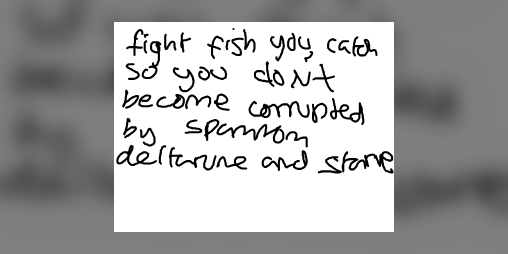 fight fish you catch
so you don't
become corrupted
by spamton
deltarune and starve